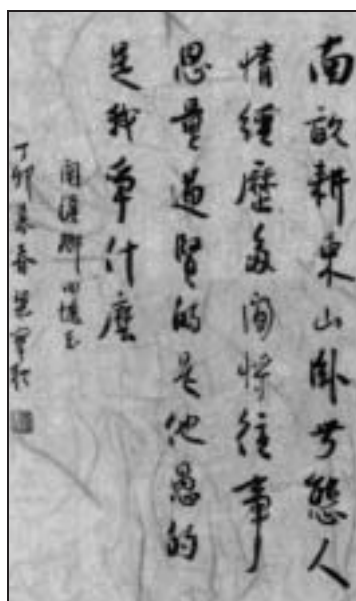 南畝耕東山臥世態人
情經歷多閒將往事
思量過賢的是他愚的
是我爭什麼
關漢卿四塊玉
丁卯暮春